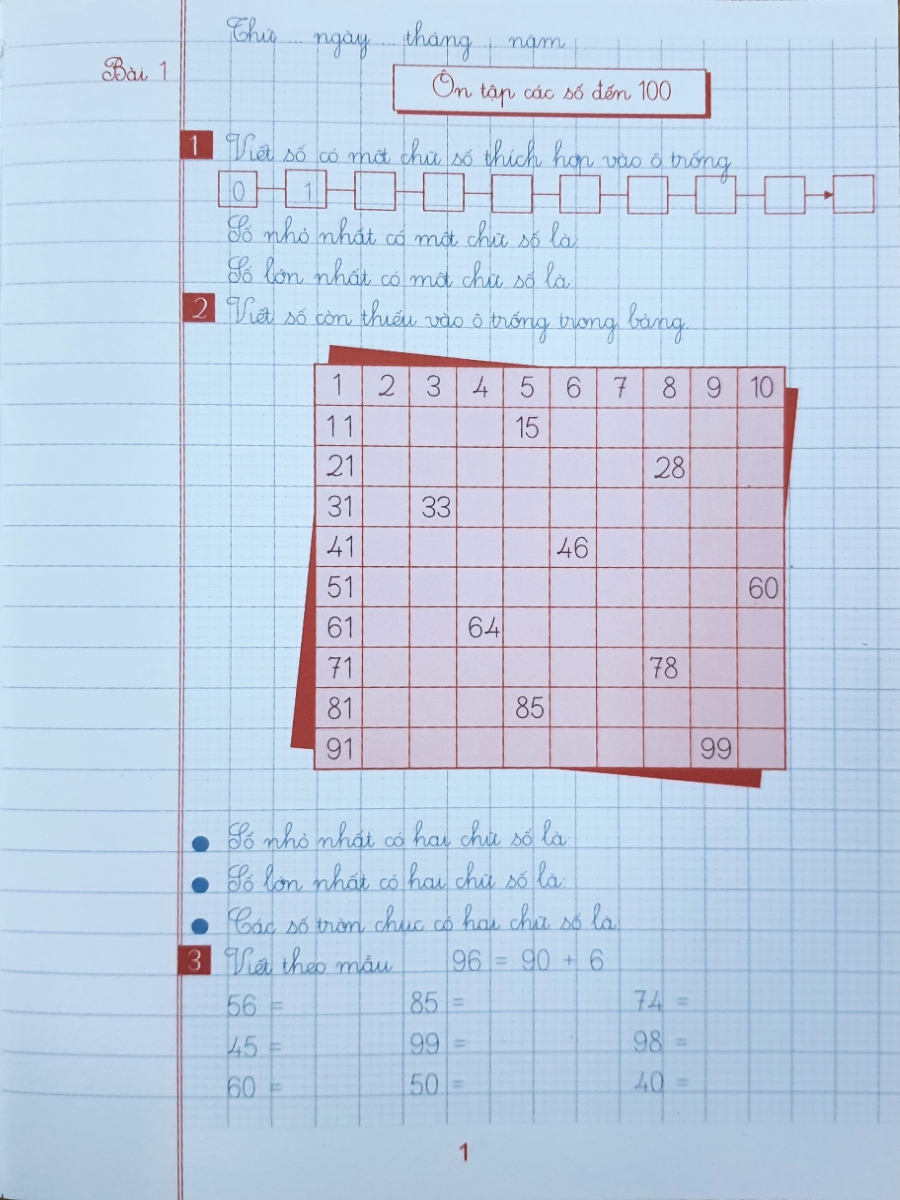 Thứ ngày tháng năm
Bài 1
Ôn tập các số đến 100
1 Viết số có một chữ số thích hợp vào ô trống
0 1
Số nhỏ nhất có một chữ số là
Số lớn nhất có một chữ số là
2 Viết số còn thiếu vào ô trống trong bảng.
1 2 3 4 5 6 7 8 9 10
11 15
21 28
31 33
41 46
51 60
61 64
71 78
81 85
91 99
Số nhỏ nhất có hai chữ số là:
Số lớn nhất có hai chữ số là:
Các số tròn chục có hai chữ số là
3 Viết theo mẫu 96 = 90 + 6
56 = 85 = 74 =
45 = 99 = 98 =
60 = 50 = 40 =
1